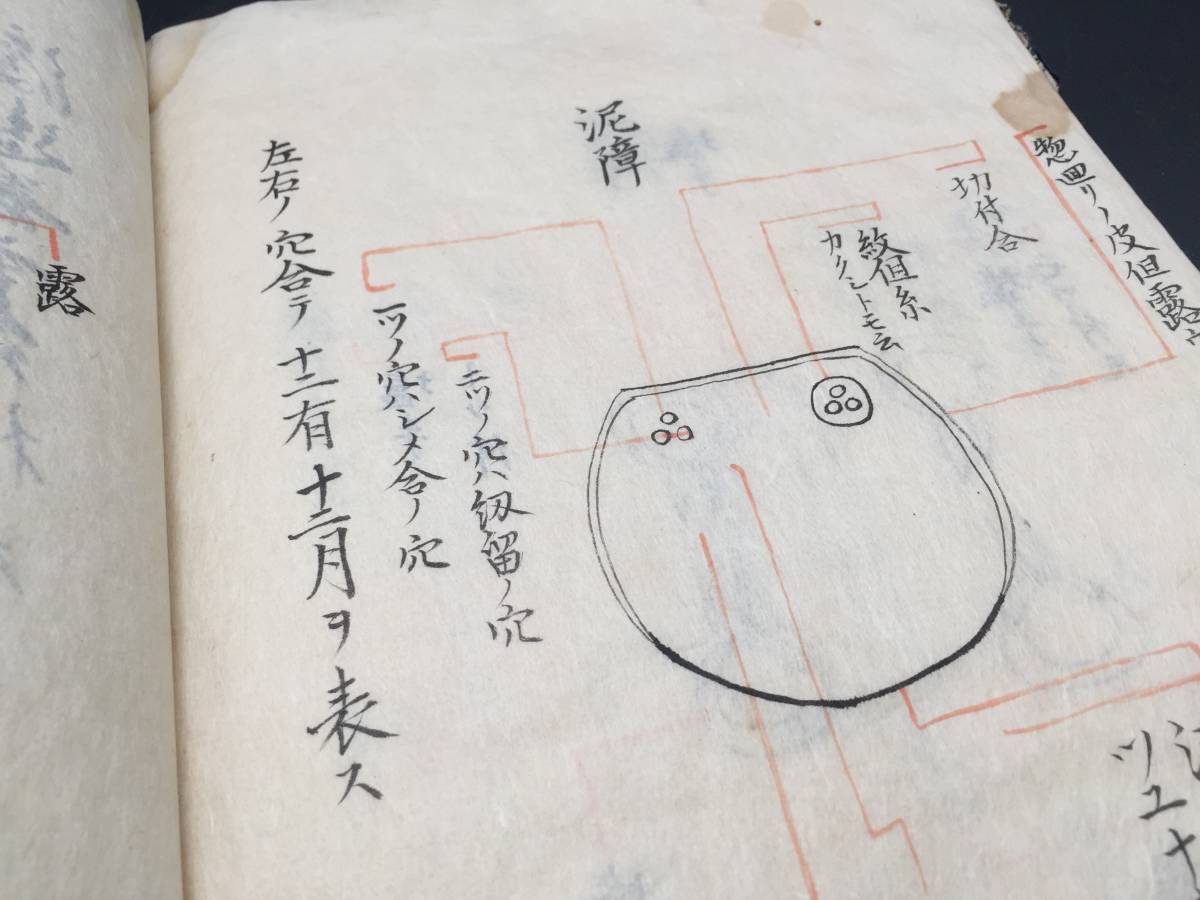 惣囬リノ皮但露ヤ
切付合
紋但糸
カクシトモ云
泥障
二ツノ穴ハ級留ノ穴
一ツノ穴ハシメ合ノ穴
左右ノ穴合テ十二有十二月ヲ表ス
ツユナ
露